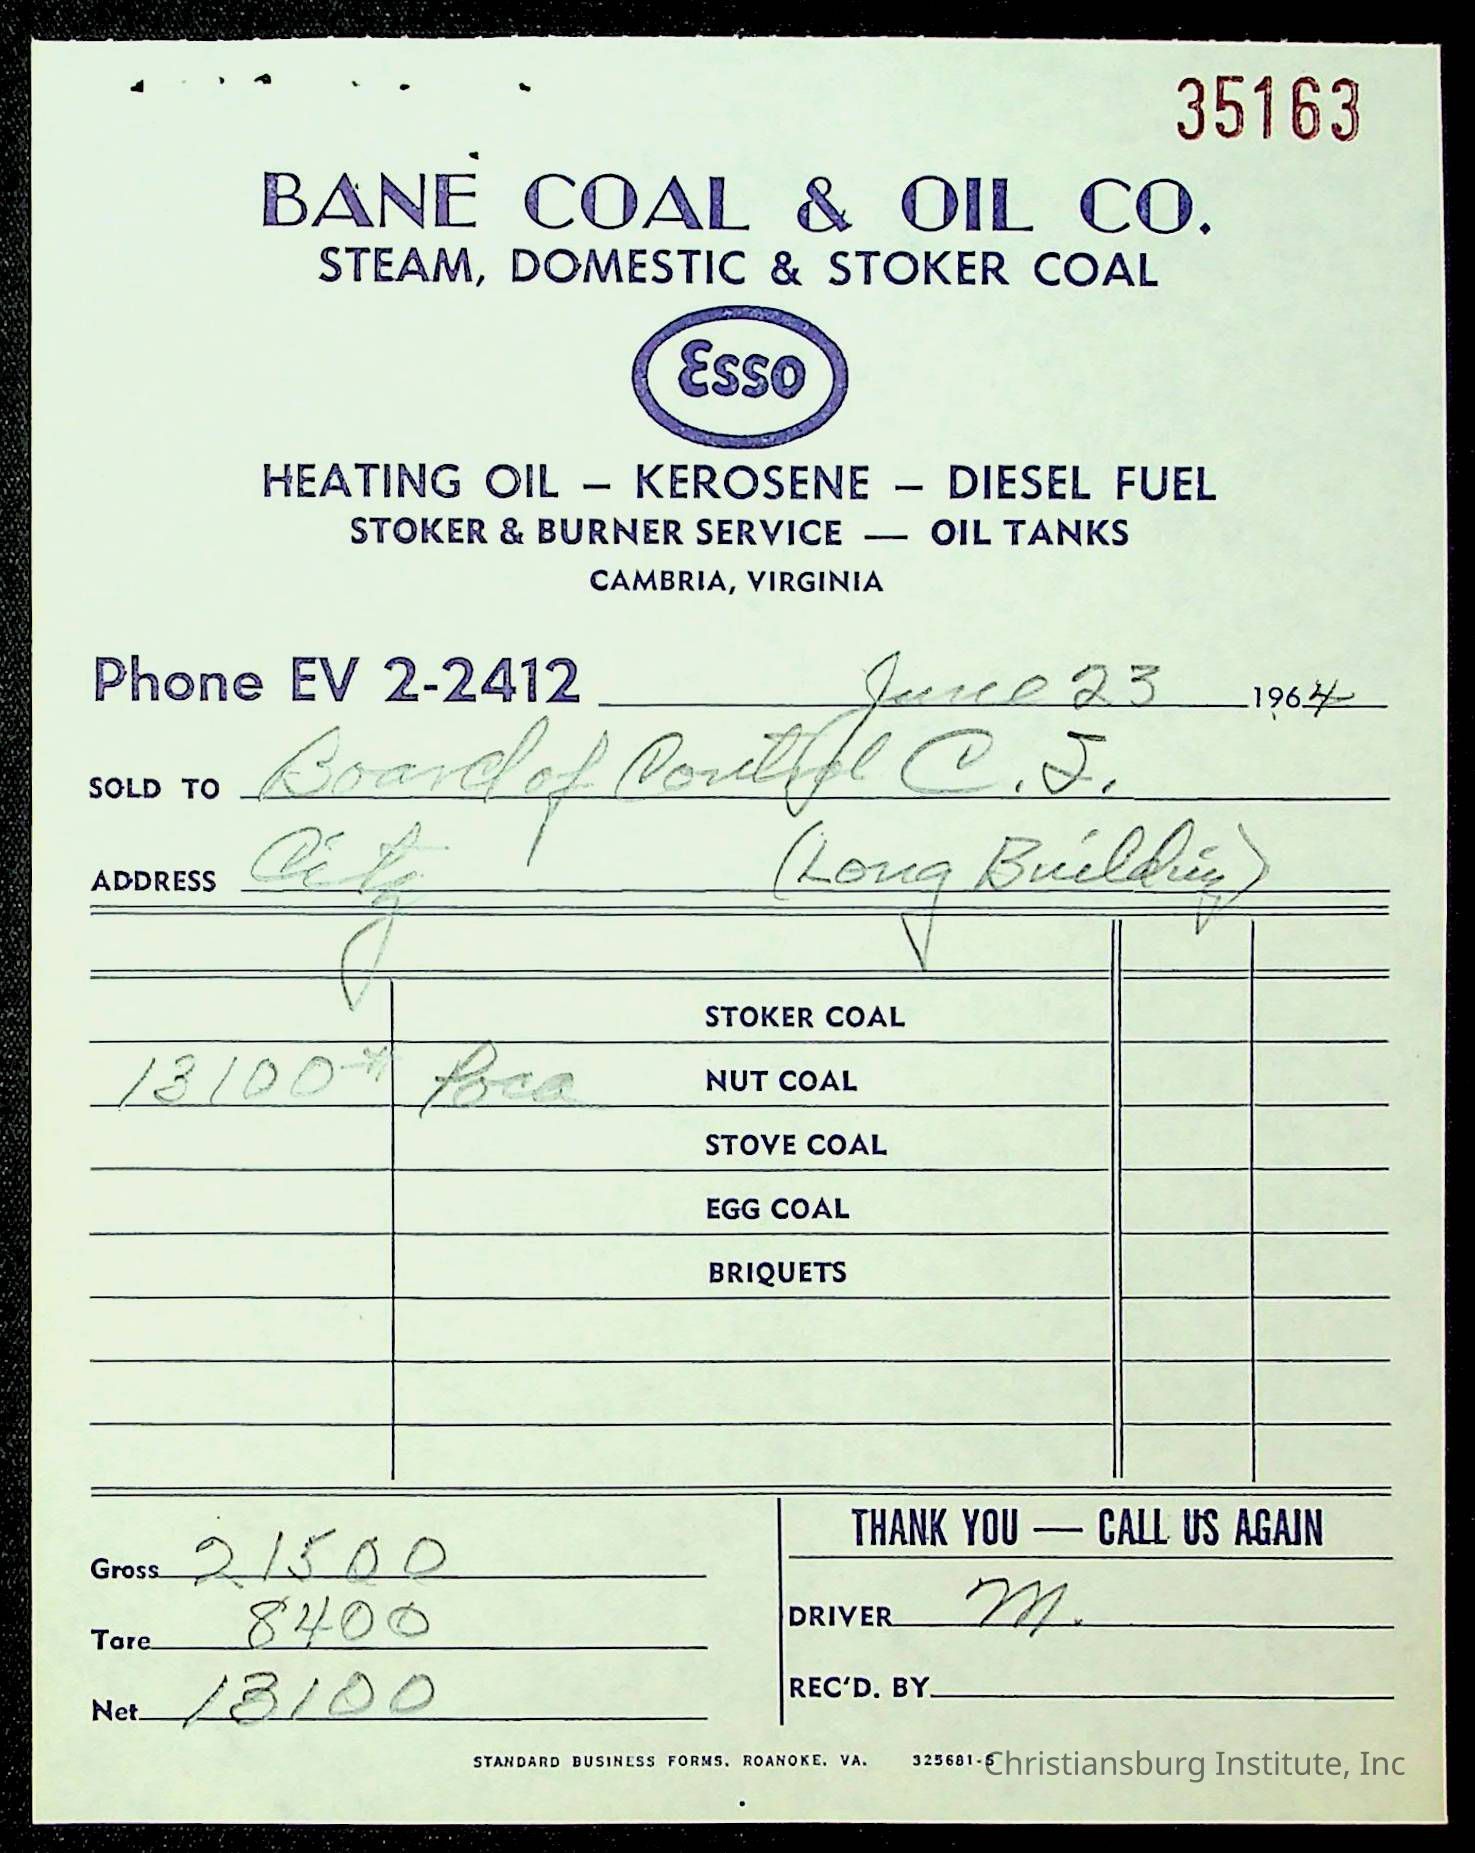 35163
BANE COAL & OIL CO.
STEAM, DOMESTIC & STOKER COAL
Esso
HEATING OIL — KEROSENE — DIESEL FUEL
STOKER & BURNER SERVICE — OIL TANKS
CAMBRIA, VIRGINIA
Phone EV 2-2412 June 23 1964
SOLD TO Board of Control C. I.
ADDRESS City (Long Building)
STOKER COAL
13100# Poca NUT COAL
STOVE COAL
EGG COAL
BRIQUETS
THANK YOU — CALL US AGAIN
Gross 21500
Tare 8400
Net 13100
DRIVER M.
REC'D. BY
STANDARD BUSINESS FORMS, ROANOKE, VA. 325681-5
Christiansburg Institute, Inc